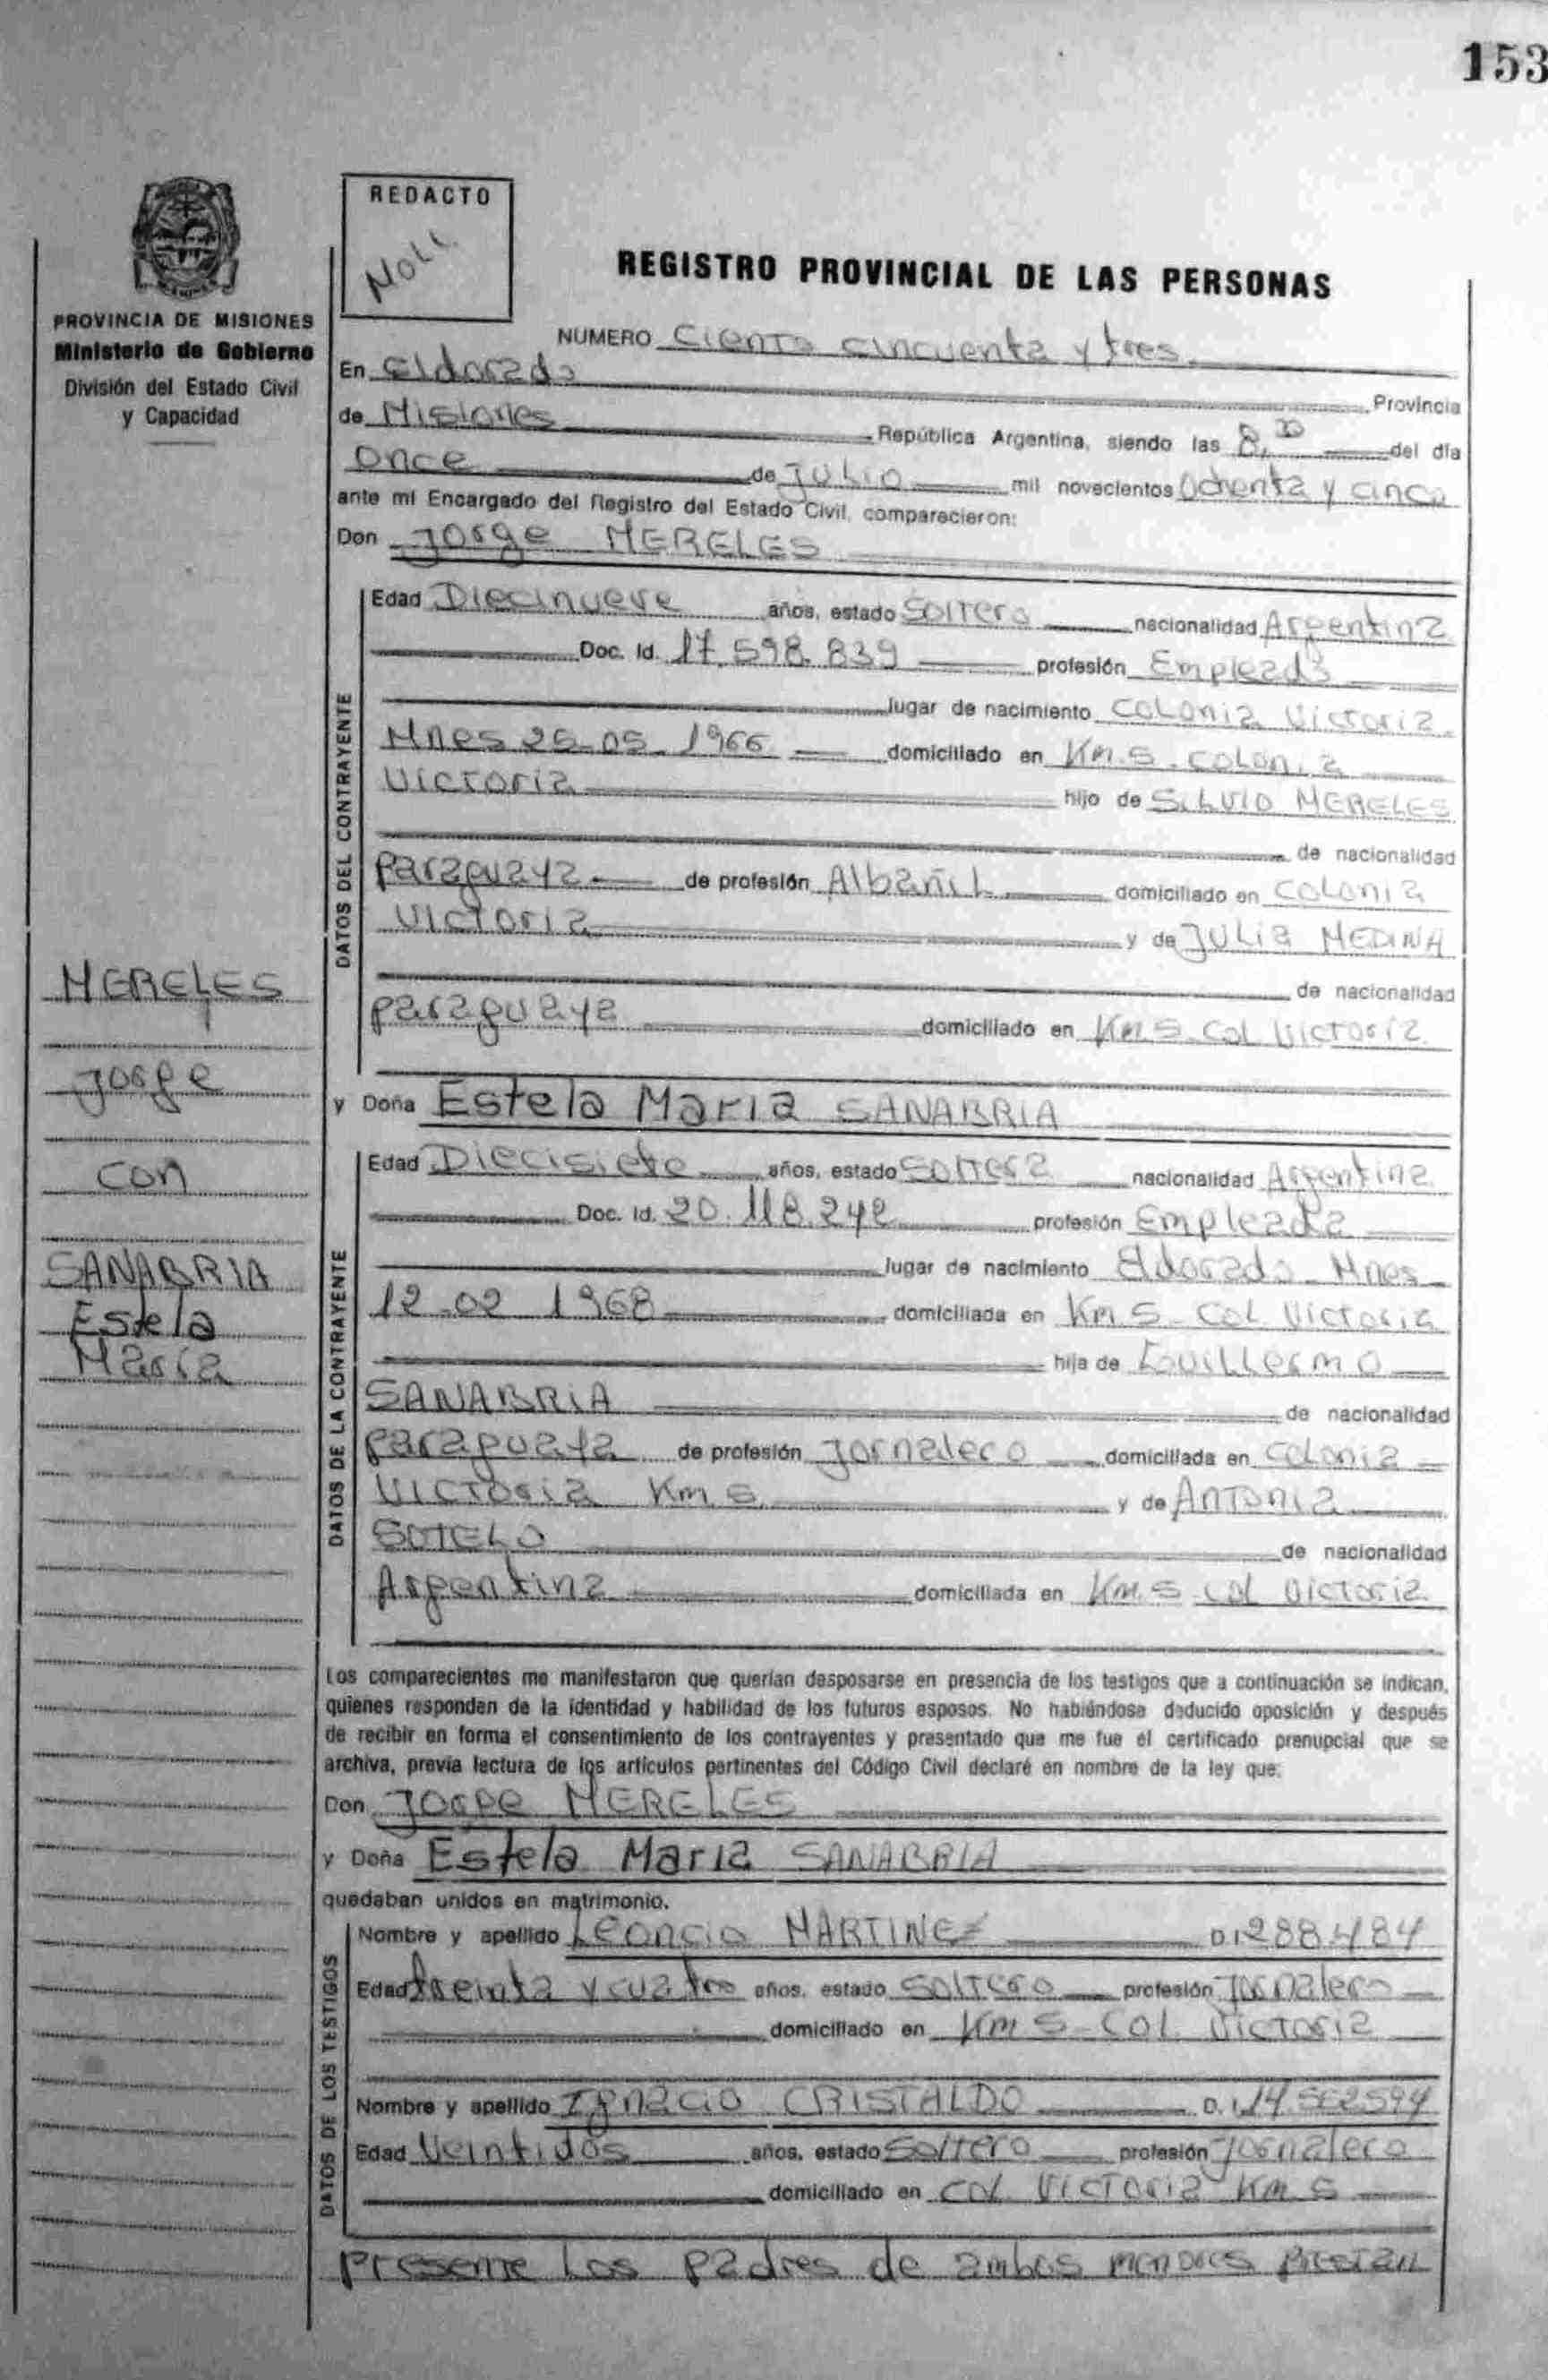 153
REDACTO
REGISTRO PROVINCIAL DE LAS PERSONAS
PROVINCIA DE MISIONES
Ministerio de Gobierno
División del Estado Civil
y Capacidad
NUMERO Ciento cincuenta y tres
En Eldorado Provincia
de Misiones República Argentina, siendo las 8,30 del día
Once de Julio mil novecientos Ochenta y cinco
ante mi Encargado del Registro del Estado Civil, comparecieron:
Don Jorge MERELES
DATOS DEL CONTRAYENTE
Edad Diecinueve años, estado Soltero nacionalidad Argentina
Doc. Id. 17.598.839 profesión Empleado
lugar de nacimiento Colonia Victoria
Mnes 25-05-1966 domiciliado en Km. 5 - Colonia
Victoria hijo de SILVIO MERELES
de nacionalidad
paraguaya de profesión Albañil domiciliado en Colonia
Victoria y de Julia MEDINA
de nacionalidad
paraguaya domiciliado en Km 5 - Col Victoria
MERELES
Jorge
con
SANABRIA
Estela
Maria
y Doña Estela Maria SANABRIA
DATOS DE LA CONTRAYENTE
Edad Diecisiete años, estado Soltera nacionalidad Argentina
Doc. Id. 20.118.242 profesión Empleada
lugar de nacimiento Eldorado Mnes
12-02 1968 domiciliada en Km 5 - Col Victoria
hija de Guillermo
SANABRIA de nacionalidad
paraguaya de profesión Jornalero domiciliada en Colonia
Victoria Km 5 y de Antonia
SOTELO de nacionalidad
Argentina domiciliada en Km. 5 Col Victoria
Los comparecientes me manifestaron que querían desposarse en presencia de los testigos que a continuación se indican,
quienes responden de la identidad y habilidad de los futuros esposos. No habiéndose deducido oposición y después
de recibir en forma el consentimiento de los contrayentes y presentado que me fue el certificado prenupcial que se
archiva, previa lectura de los artículos pertinentes del Código Civil declaré en nombre de la ley que:
Don Jorge MERELES
y Doña Estela Maria SANABRIA
quedaban unidos en matrimonio.
DATOS DE LOS TESTIGOS
Nombre y apellido Leoncio MARTINEZ D.I.
Edad treinta y cuatro años, estado Soltero profesión Jornalero
domiciliado en Km 5 - Col. Victoria
Nombre y apellido Ignacio CRISTALDO D.I. 14.562594
Edad Veintidos años, estado Soltero profesión Jornalero
domiciliado en Col Victoria Km 5
Presente los padres de ambos menores prestan